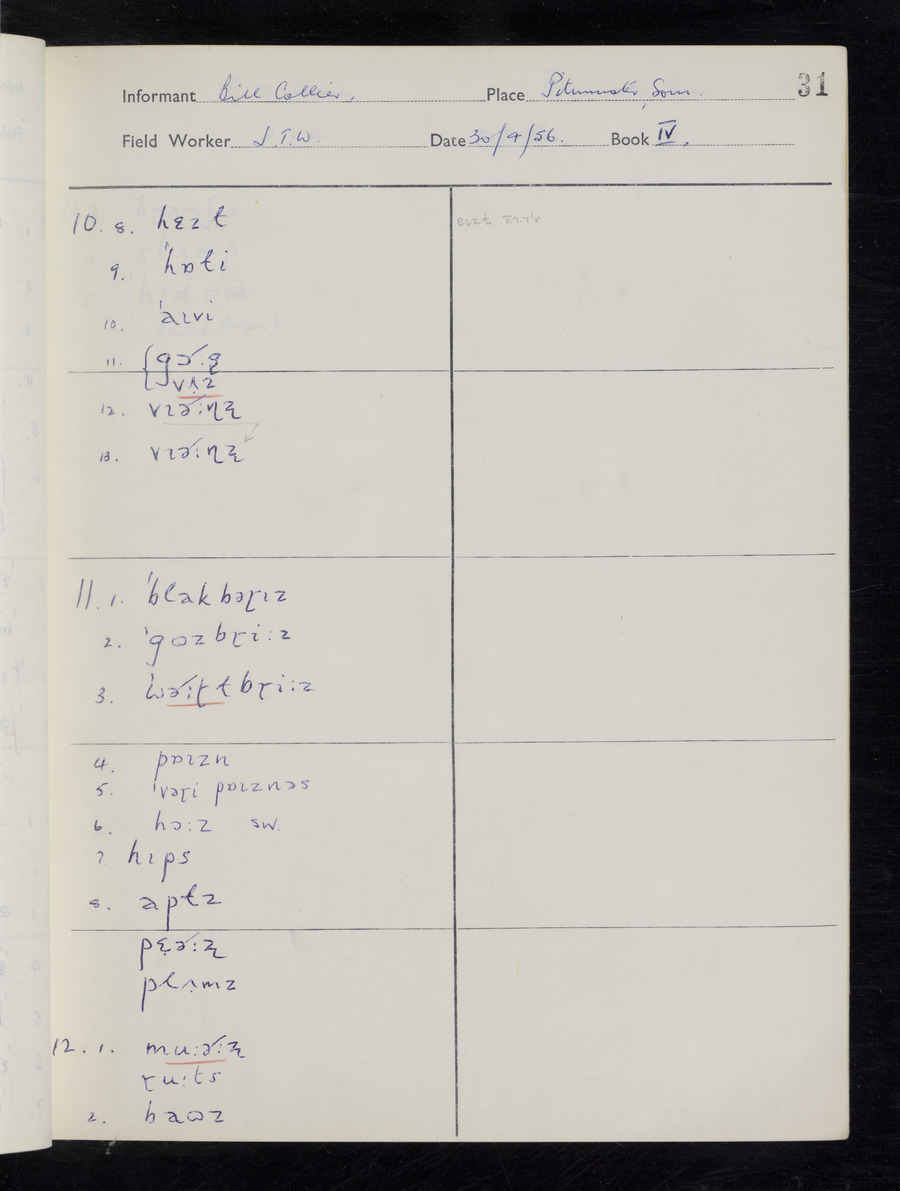 31
Informant Bill Collier, Place Pitminster, Som.
Field Worker J.T.W. Date 30/4/56. Book IV,
10. 8. hɛɪzt
9. ˈhɒti
10. ˈaɪvi
11. { gɔ˞ːg
vʌ̣z
12. vɪə˞ːɳʐ
13. vɪə˞ːɳʐ
11. 1. ˈblakbəɽɪz
2. ˈgʊzbɽiːz
3. ˈwə˞ːʈtbɽiːz
4. pɒɪzn
5. ˈvəɽi pɒɪznəs
6. hɔːz sw.
7 hɪps
8. aptz
pɛ̣ə˞ːʐ
plʌ̣mz
12. 1. muːə˞ːʐ
ɽuːts
2. baʊz